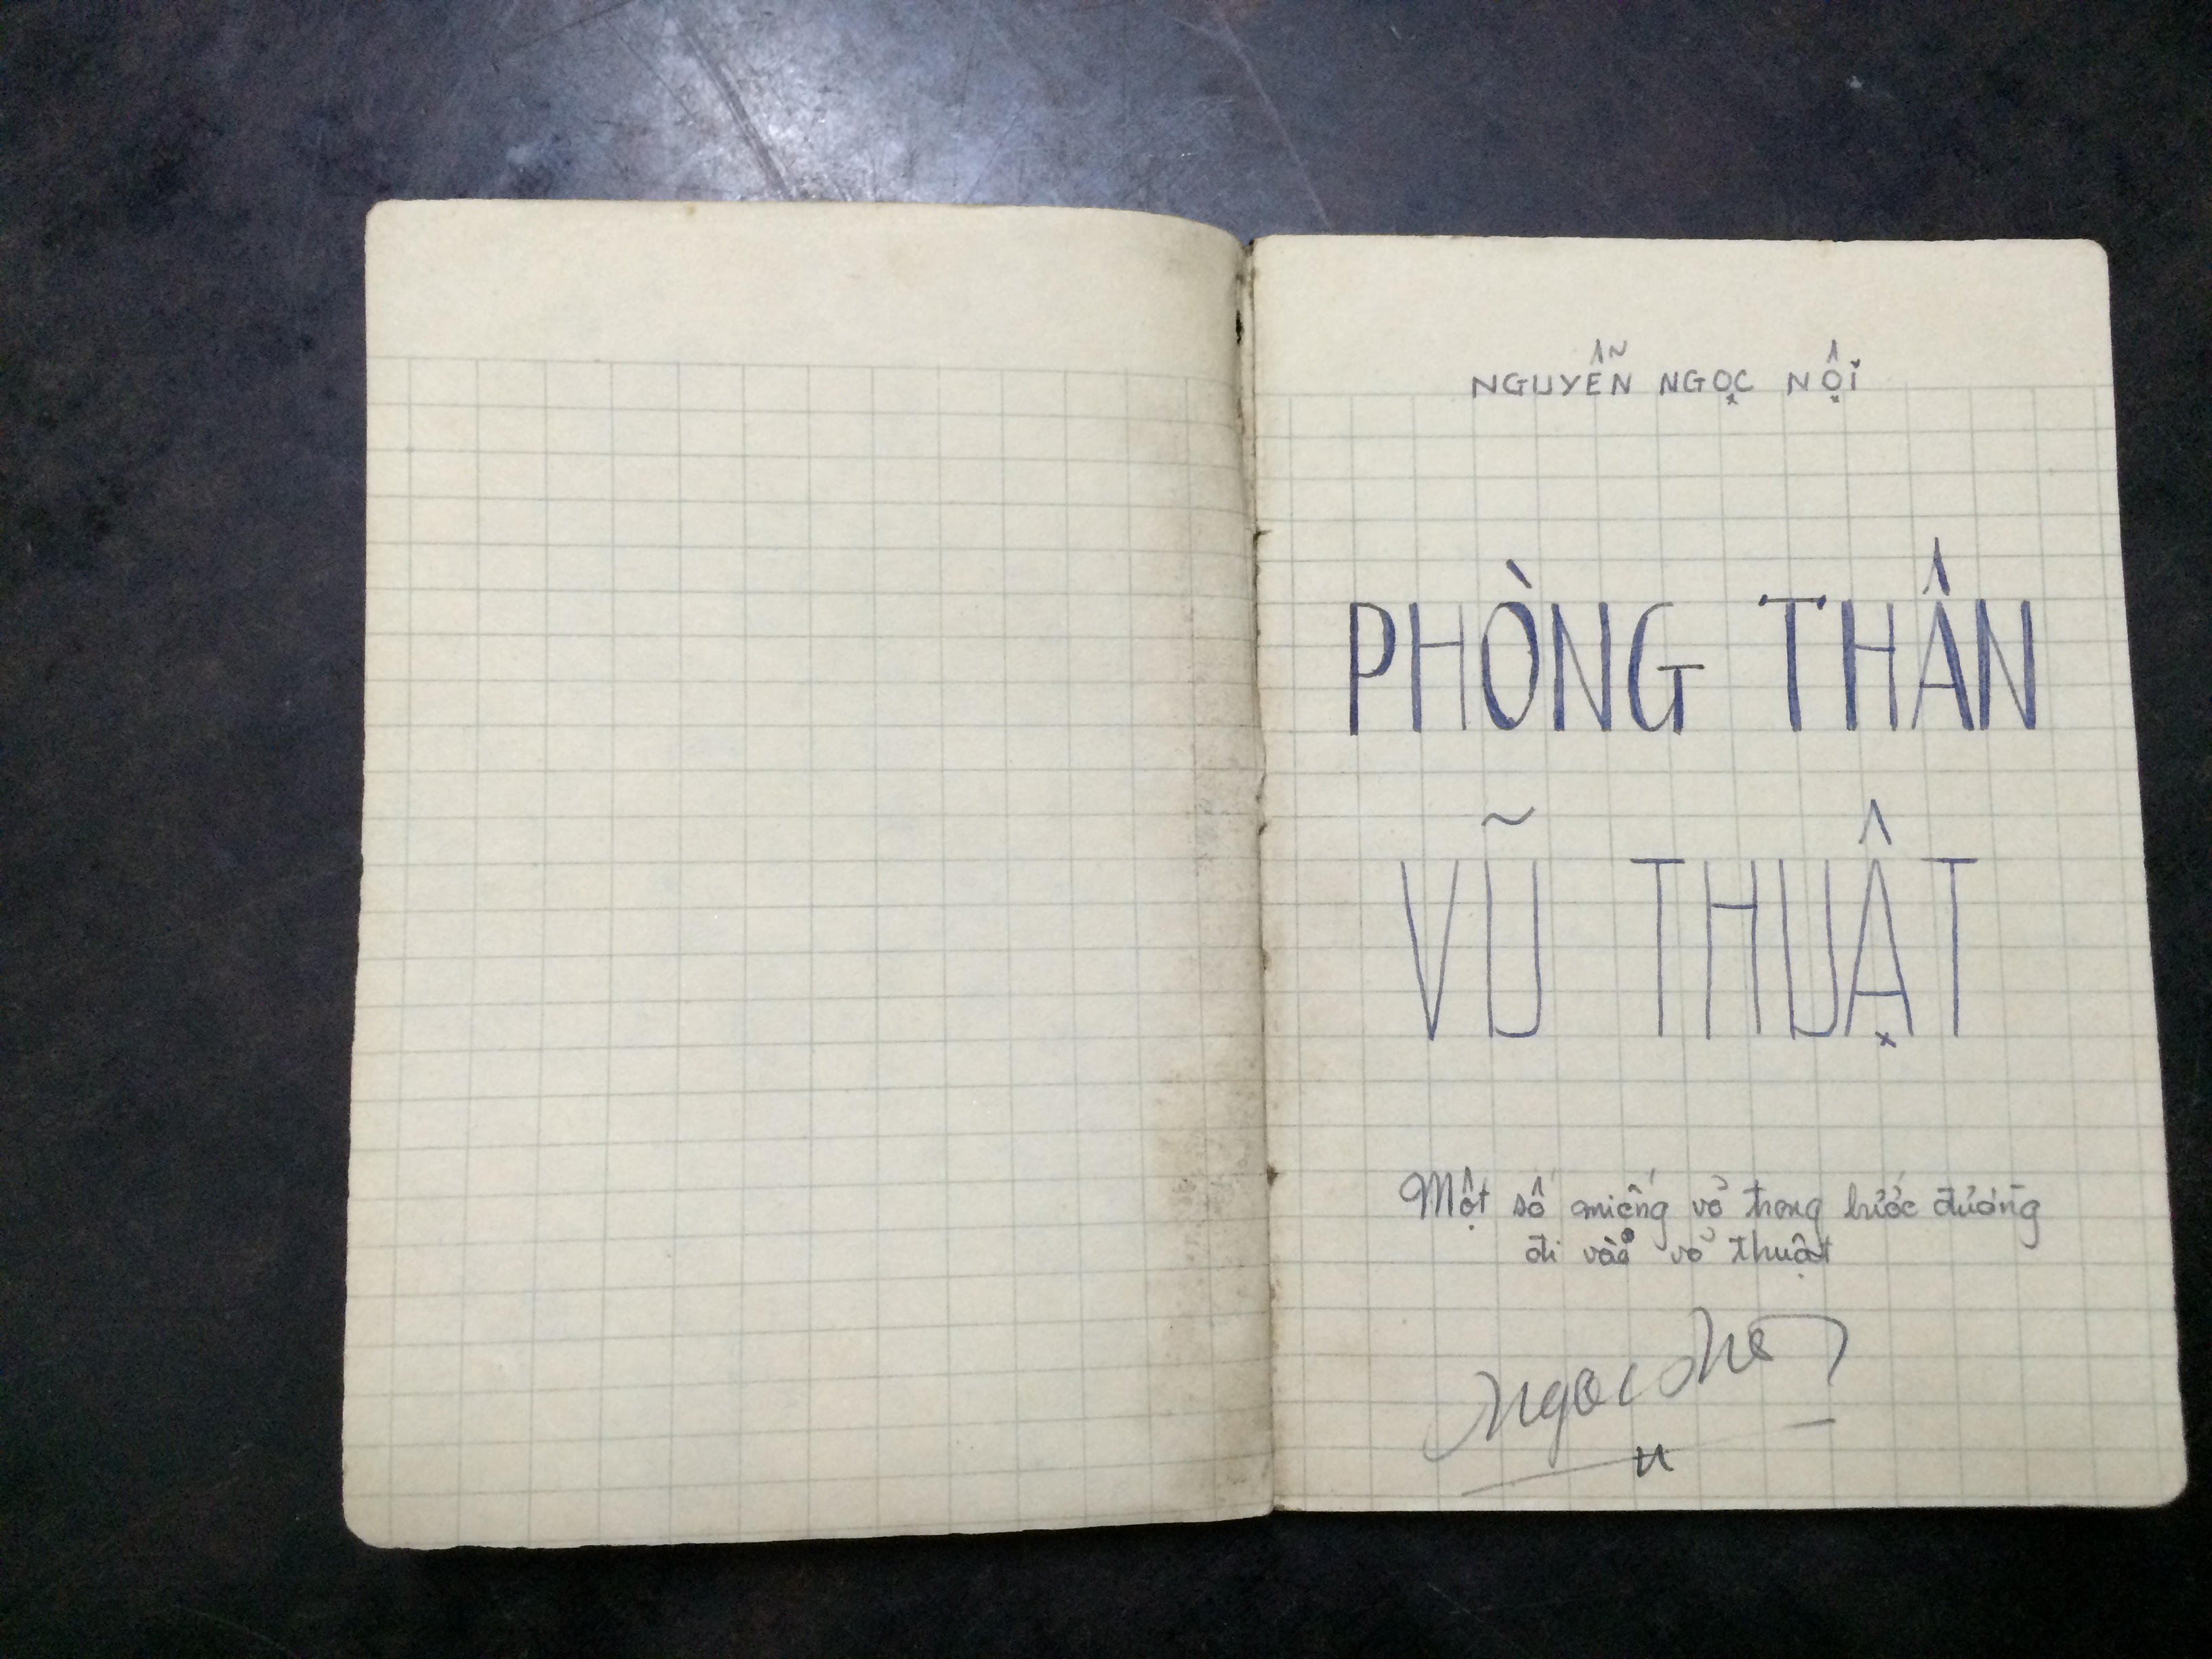 NGUYỄN NGỌC NỘI
PHÒNG THÂN
VŨ THUẬT
Một số miếng võ trong bước đường
đi vào võ thuật
Ngọc Nội